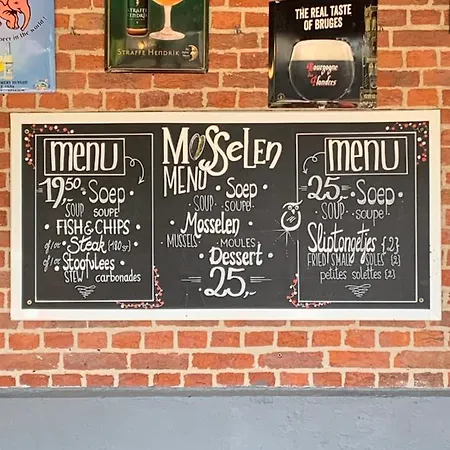 beer in the world
STRAFFE HENDRIK
STRAFFE HENDRIK
THE REAL TASTE
OF BRUGES
Bourgogne
des
Flanders
menu
19,50 Soep
SOUP SOUPE
FISH & CHIPS
of/or Steak (180gr)
of/or Stoofvlees
STEW carbonades
Mosselen
MENU
Soep
SOUP SOUPE
Mosselen
MUSSELS MOULES
Dessert
25,-
menu
25,- Soep
SOUP soupe
Sliptongetjes {2}
FRIED SMALL SOLES {2}
petites solettes {2}